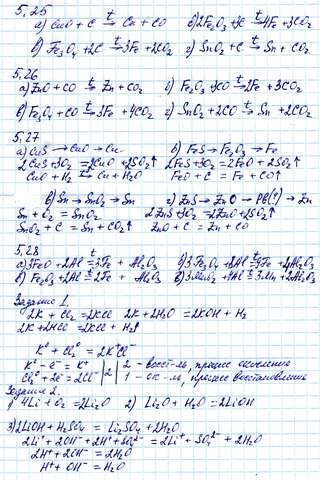 5,25
а) CuO + C →t Cu + CO б) 2Fe₂O₃ + 3C →t 4Fe + 3CO₂
в) Fe₃O₄ + 2C →t 3Fe + 2CO₂ г) SnO₂ + C →t Sn + CO₂
5,26
а) ZnO + CO →t Zn + CO₂ б) Fe₂O₃ + 3CO →t 2Fe + 3CO₂
в) Fe₃O₄ + CO →t 3Fe + 4CO₂ г) SnO₂ + 2CO →t Sn + 2CO₂
5,27
а) CuS → CuO → Cu б) FeS → Fe₂O₃ → Fe
2CuS + 3O₂ = 2CuO + 2SO₂↑ 2FeS + 3O₂ = 2FeO + 2SO₂↑
CuO + H₂ →t Cu + H₂O FeO + C = Fe + CO↑
в) Sn → SnO₂ → Sn г) ZnS → ZnO → PB(?) → Zn
Sn + O₂ = SnO₂ 2ZnS + 3O₂ = 2ZnO + 2SO₂↑
SnO₂ + C = Sn + CO₂↑ ZnO + C = Zn + CO
5,28
а) 3FeO + 2Al =t 3Fe + Al₂O₃ б) 3Fe₃O₄ + 8Al =t 9Fe + 4Al₂O₃
в) Fe₂O₃ + 2Al =t 2Fe + Al₂O₃
Задание 1.
2K + Cl₂ = 2KCl 2K + 2H₂O = 2KOH + H₂
2K + 2HCl = 2KCl + H₂↑
K⁰ + Cl₂⁰ = 2K⁺Cl⁻
K⁰ - e⁻ = K⁺ | 2 | 2 - восст-ль, процесс окисление
Cl₂⁰ + 2e⁻ = 2Cl⁻ | 1 - ок-ль, процесс восстановление
Задание 2.
1) 4Li + O₂ = 2Li₂O 2) Li₂O + H₂O = 2LiOH
3) 2LiOH + H₂SO₄ = Li₂SO₄ + 2H₂O
2Li⁺ + 2OH⁻ + 2H⁺ + SO₄²⁻ = 2Li⁺ + SO₄²⁻ + 2H₂O
2H⁺ + 2OH⁻ = 2H₂O
H⁺ + OH⁻ = H₂O